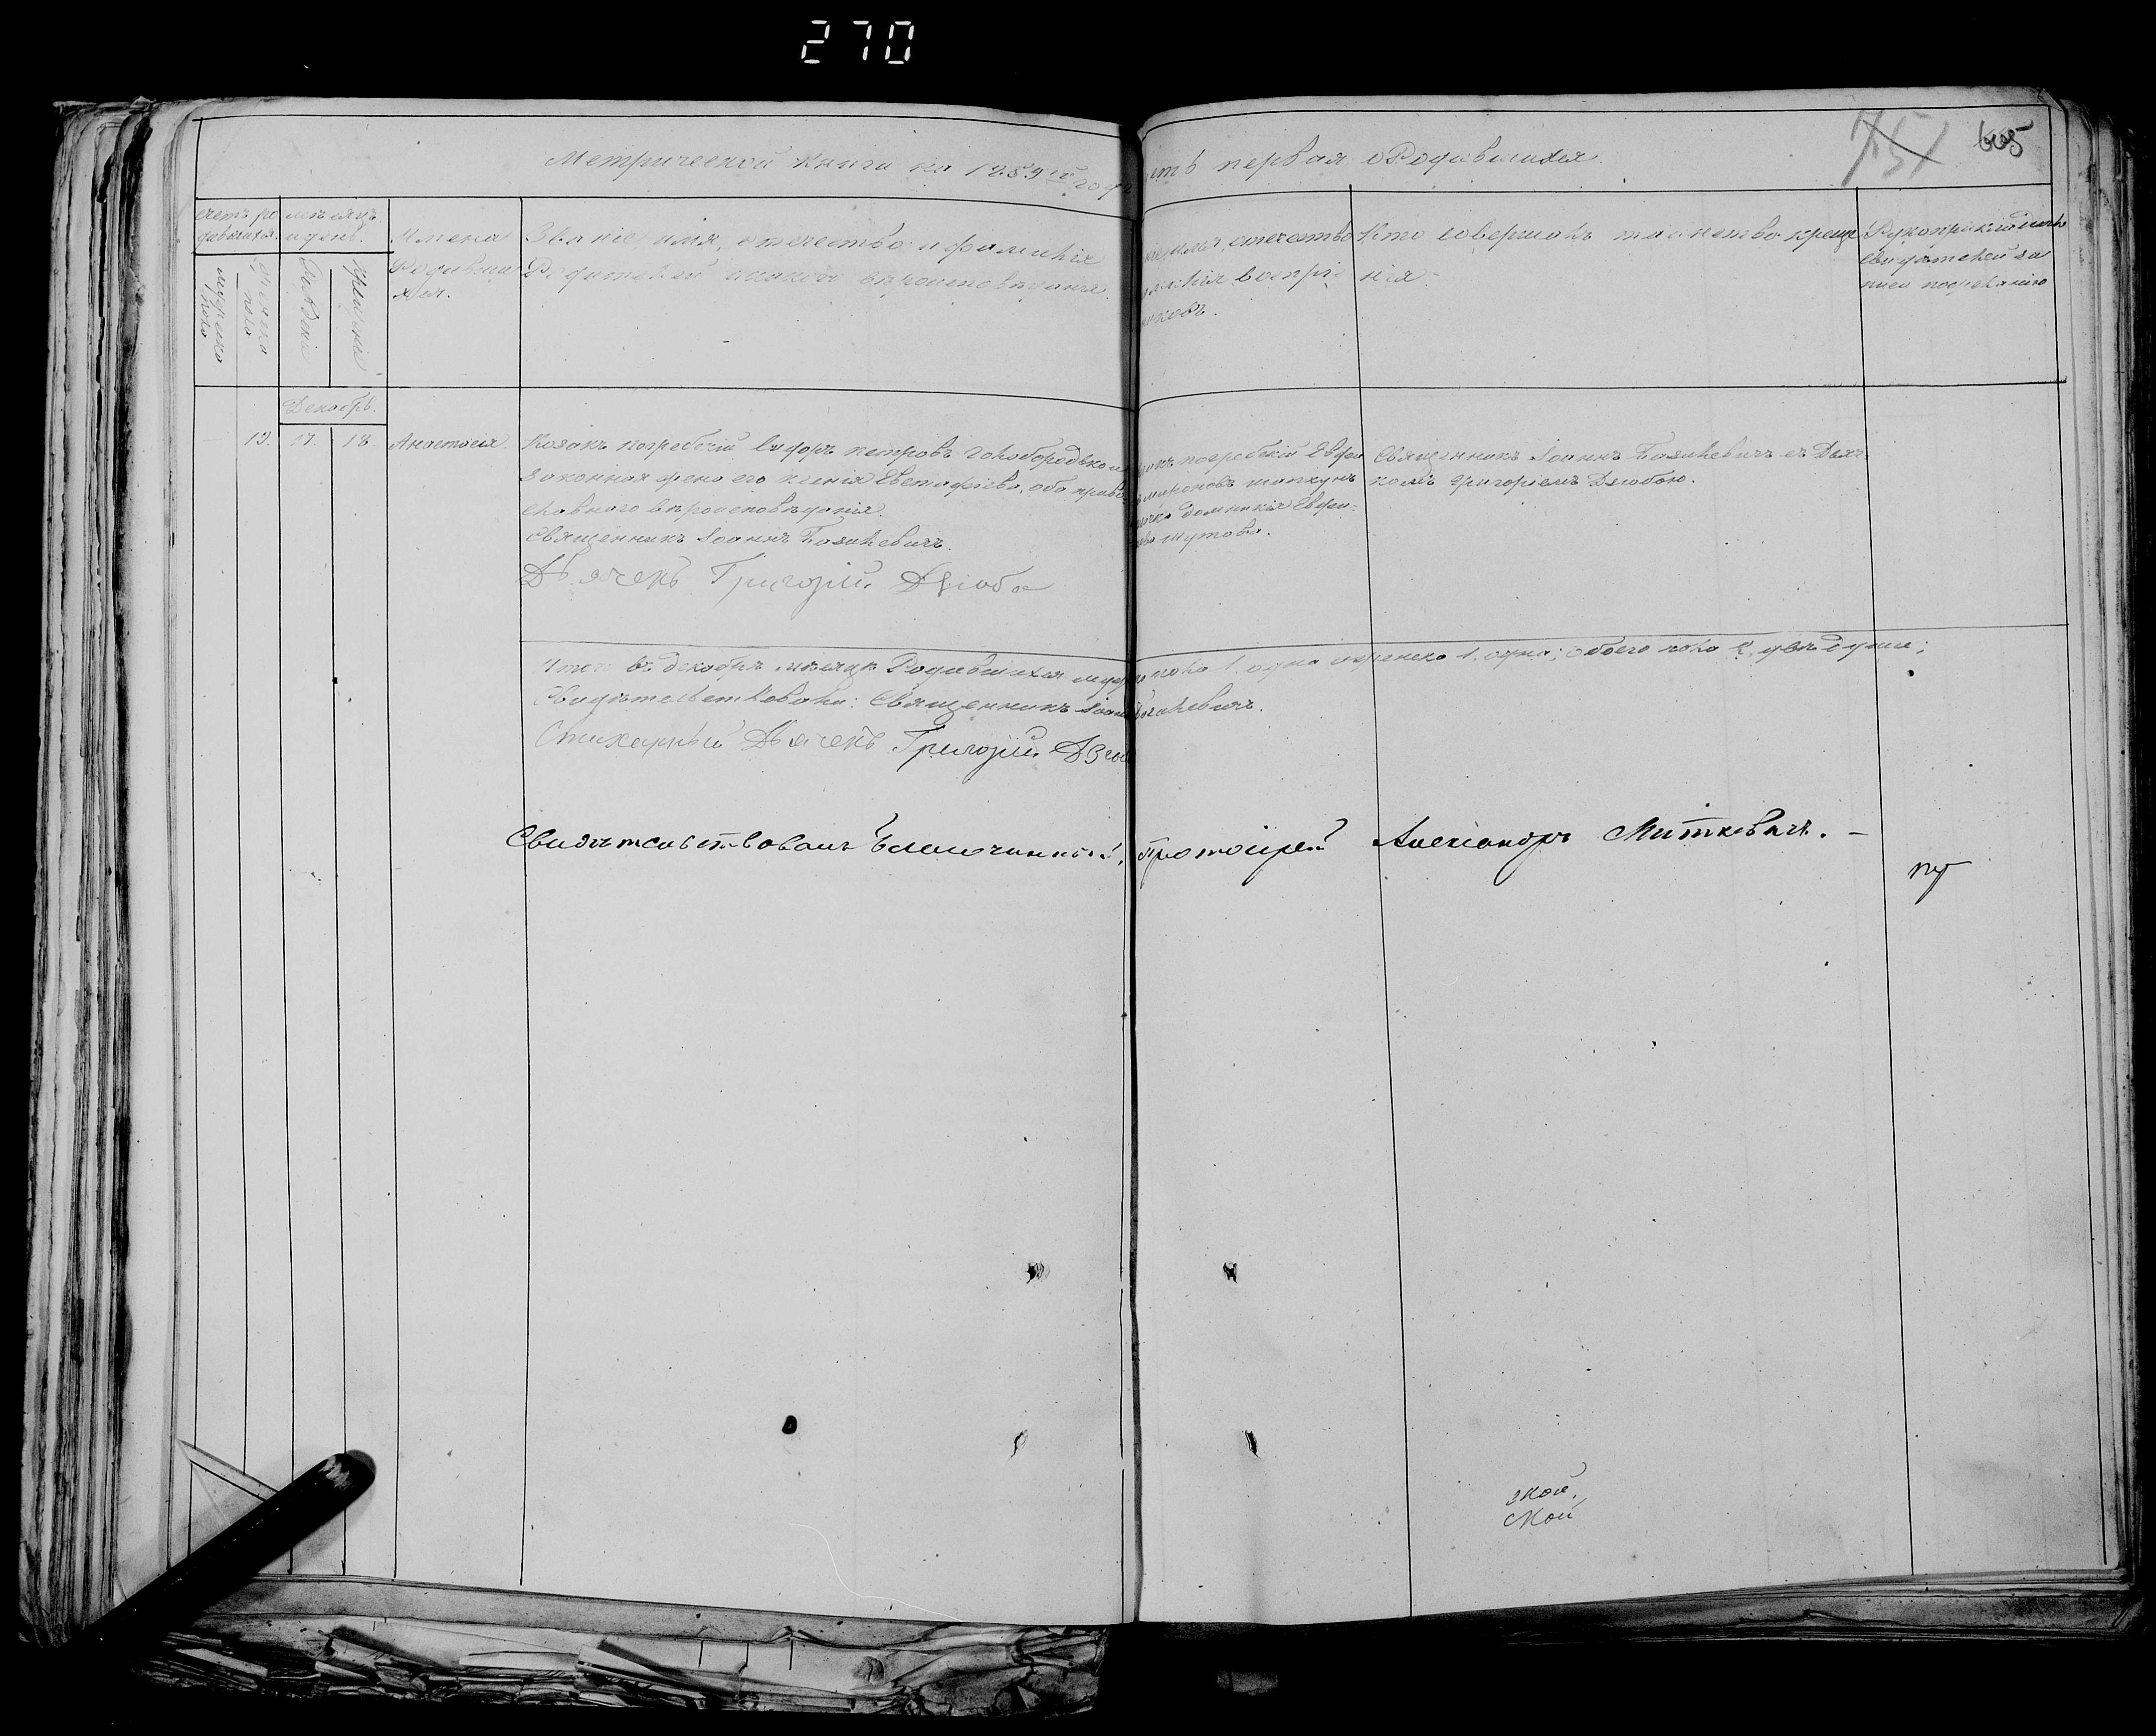 270
Метрической книги на 1859 го года
сть первая о Родившихся.
605
751
Счетъ ро
дившихся.
мѣсяцъ
и день.
мужеска
пола
женска
пола
Рожденія
Крещенія
Имена
Родивши
хся.
Званіе, имя, отечество и фамилія
Родителей и какого вѣроисповѣданія.
имя, отечество
милія воспрі
никовъ.
Кто совершалъ таинство креще
нія.
Рукоприкладство
свидѣтелей за
писи по желанію
Декабрь.
19. 17. 18. Анастасія
Козакъ погребскій Петровъ Голобородько и
Законная жена его Ксенія Евстафіева, оба право
славнаго вѣроисповѣданія.
Священникъ Іоаннъ Базилевичъ.
Дьячекъ Григорій Дзюба
акъ погребскій Евфи
Мироновъ
Домникія Евфи
Шутова.
Священникъ Іоаннъ Базилевичъ съ Дьяч
комъ Григоріемъ Дзюбою.
Итого въ декабрѣ мѣсяцѣ Родившихся муже пола 1, одна женска 1, одна; обоего пола 2, двѣ души;
Свидѣтельствовали: Священникъ Іоаннъ Базилевичъ.
Стихарный Дьячекъ Григорій Дзюб
Свидѣтельствовалъ Благочинный, Протоіерей Александръ Миткевичъ.